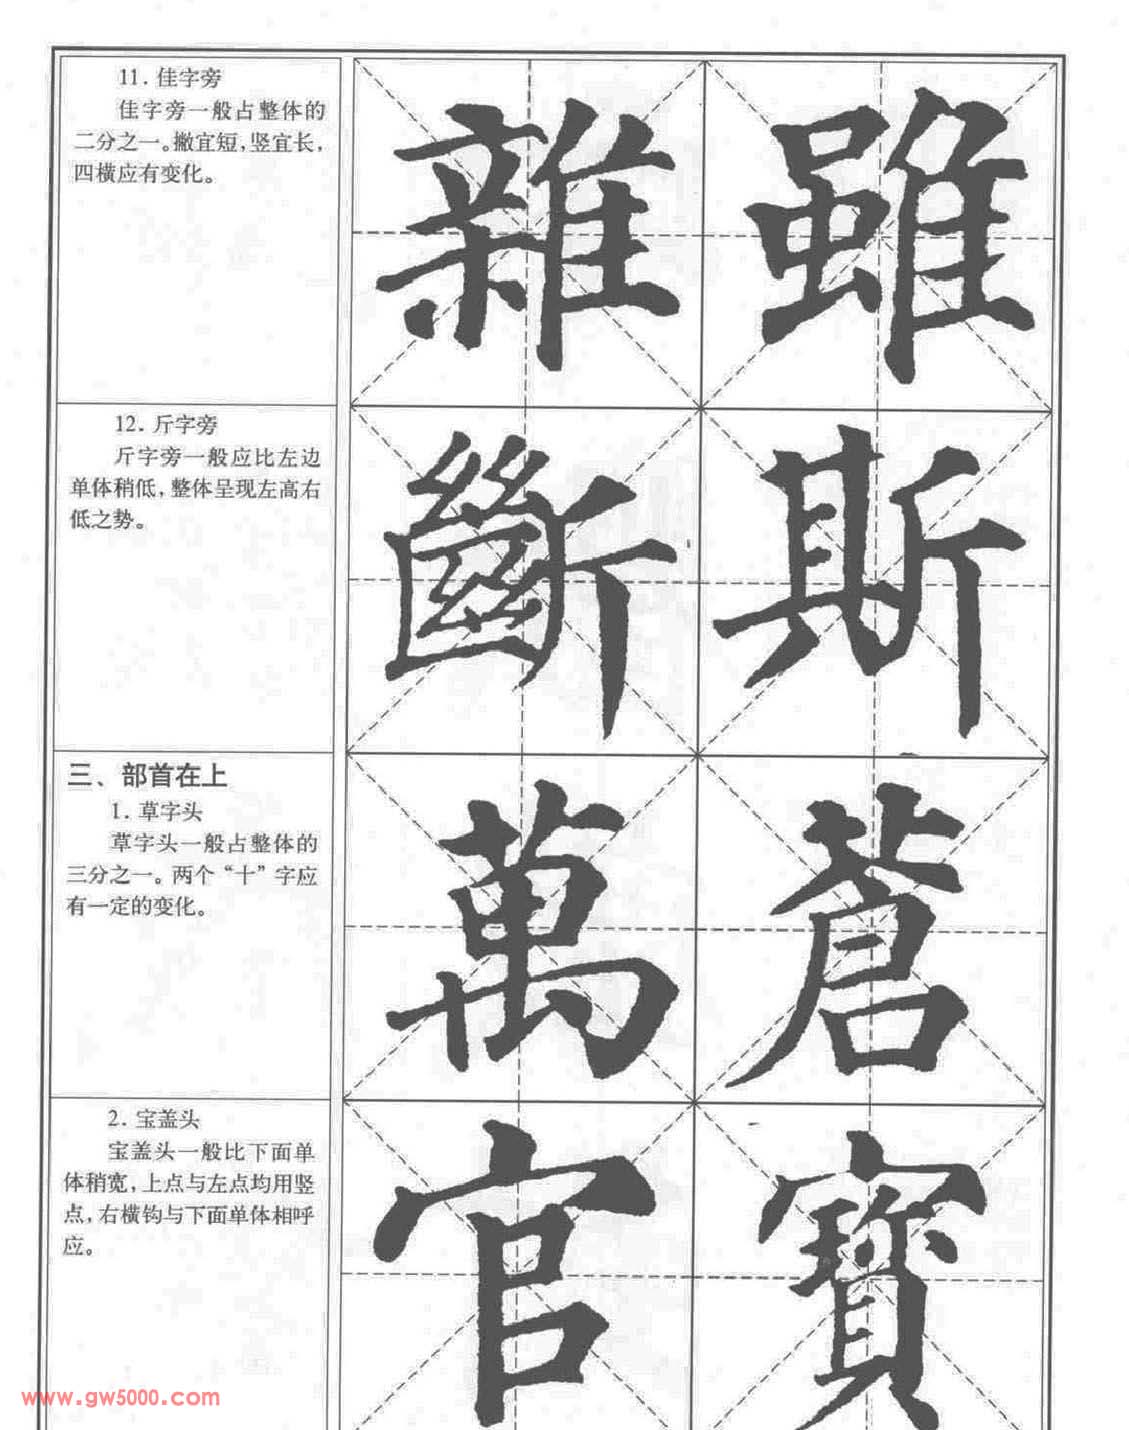 11. 佳字旁
佳字旁一般占整体的
二分之一。撇宜短,竖宜长,
四横应有变化。
雜 雖
12. 斤字旁
斤字旁一般应比左边
单体稍低,整体呈现左高右
低之势。
斷 斯
三、部首在上
1. 草字头
草字头一般占整体的
三分之一。两个“十”字应
有一定的变化。
萬 蒼
2. 宝盖头
宝盖头一般比下面单
体稍宽,上点与左点均用竖
点,右横钩与下面单体相呼
应。
官 寶
www.gw5000.com